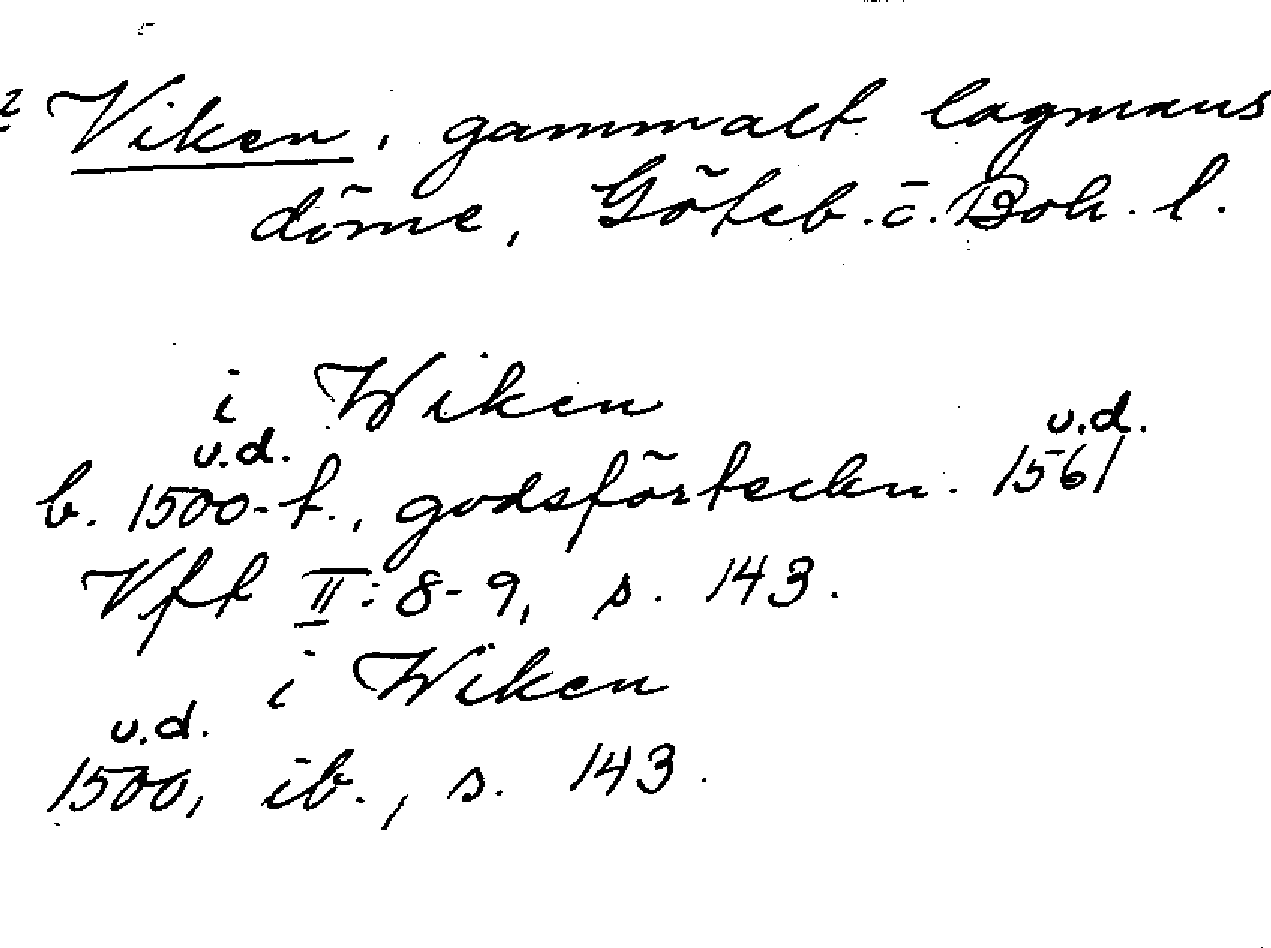 2 Viken, gammalt lagmans
döme, Göteb. o. Boh. l.
i Wiken
u.d. u.d.
b. 1500-t., godsförteckn. 1561
Vfft II: 8-9, s. 143.
i Wiken
u.d.
1500, ib., s. 143.